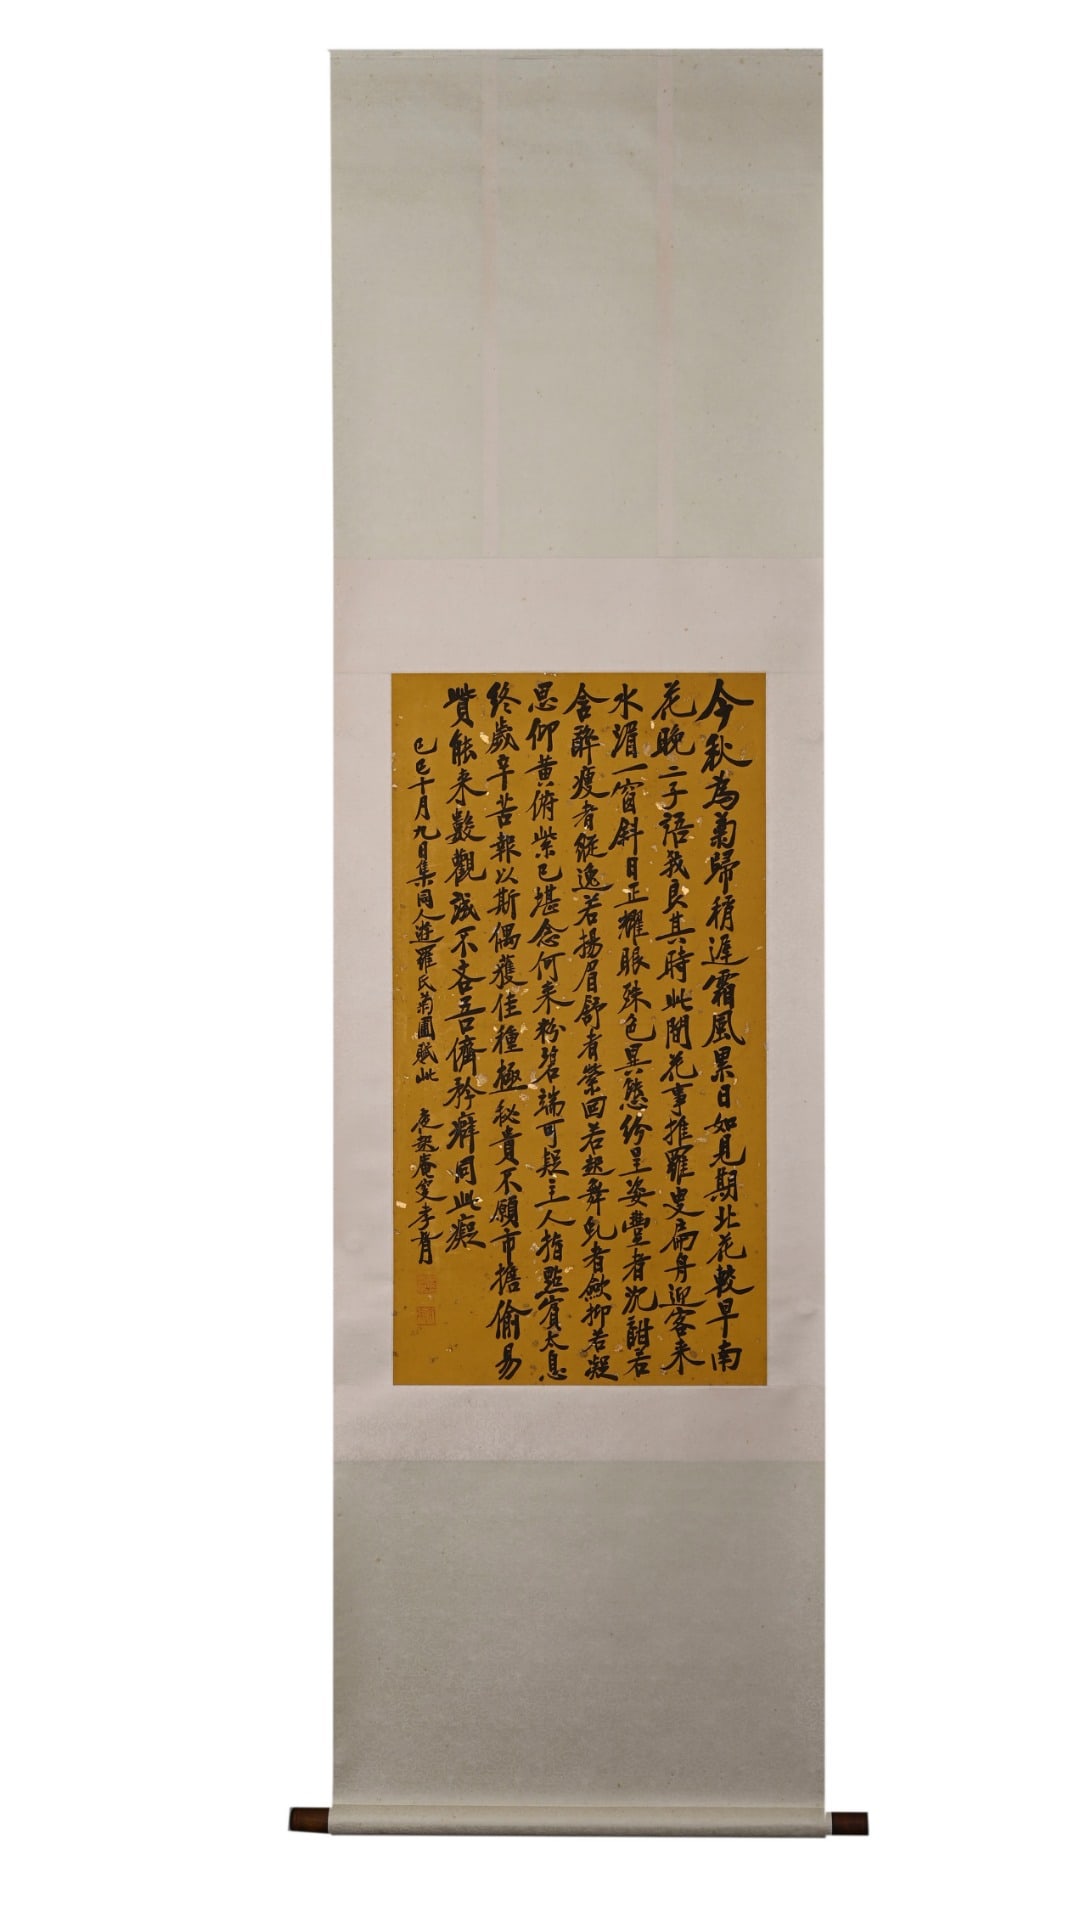 今秋為菊歸稍遲霜風累日如見期北花較早南
花晚二子語我良其時此間花事推羅叟扁舟迎客來
水湄一窗斜日正耀眼殊色異態紛呈姿豐者沉酣若
含醉瘦者縱逸若揚眉舒者縈回若起舞乱者斂抑若凝
思仰黃俯紫已堪念何来粉碧端可疑主人指點賓太息
終歲辛苦報以斯偶獲佳種極秘貴不願市擔偷易
貲能来數觀誠不吝吾儕矜癖同此癡
己巳十月九日集同人遊羅氏菊圃賦此 夜起庵叟孝胥